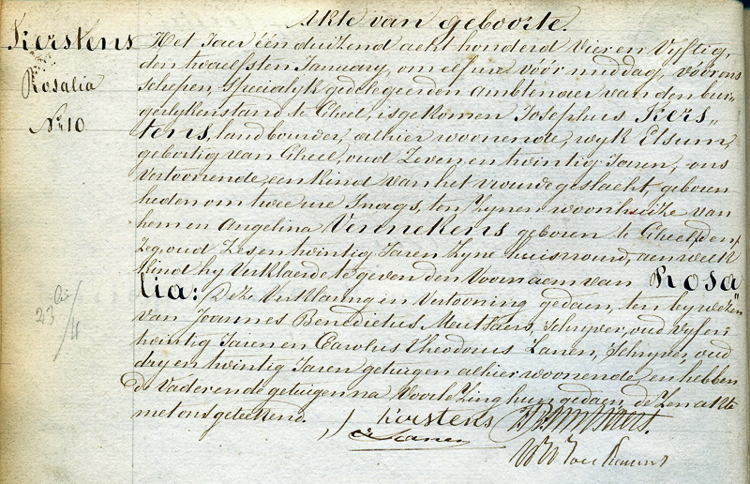 Akte van geboorte.
Kerstens
Rosalia
N° 10
Het Jaar één duizend acht honderd Vier en Vyftig,
den twaelfsten January, om elf ure vóór middag, voor ons
schepen, Specialyk gedelegeerden Ambtenaer van den bur-
gerlykenstand te Gheel, is gekomen Josephus Kers-
tens, landbouwer, alhier woonende, wyk Elsum,
geboortig van Gheel, oud Zeven en twintig Jaren, ons
vertoonende, een kind van het vrouwe geslacht, geboren
heden om twee ure Smorgs, ten Zynen woonhuize van
hem en Angelina Vennekens geboren te Gheel,
oud Zes en twintig Jaren Zyne huisvrouw, aen welk
kind hy Verklaerde te geven den Voornaem van Rosa
lia: Deze Verklaring en Vertooning gedaen, ten bywezen
van Joannes Benedictus, Schryver, oud Vyf en
twintig Jaren en Carolus Theodorus Lanen, Schryver, oud
dry en twintig Jaren getuigen alhier woonende, en hebben
de Vader en de getuigen na Voorlezing hun gedaen, dezen akte
met ons geteekend.
Kerstens
C Lanen
23
/4